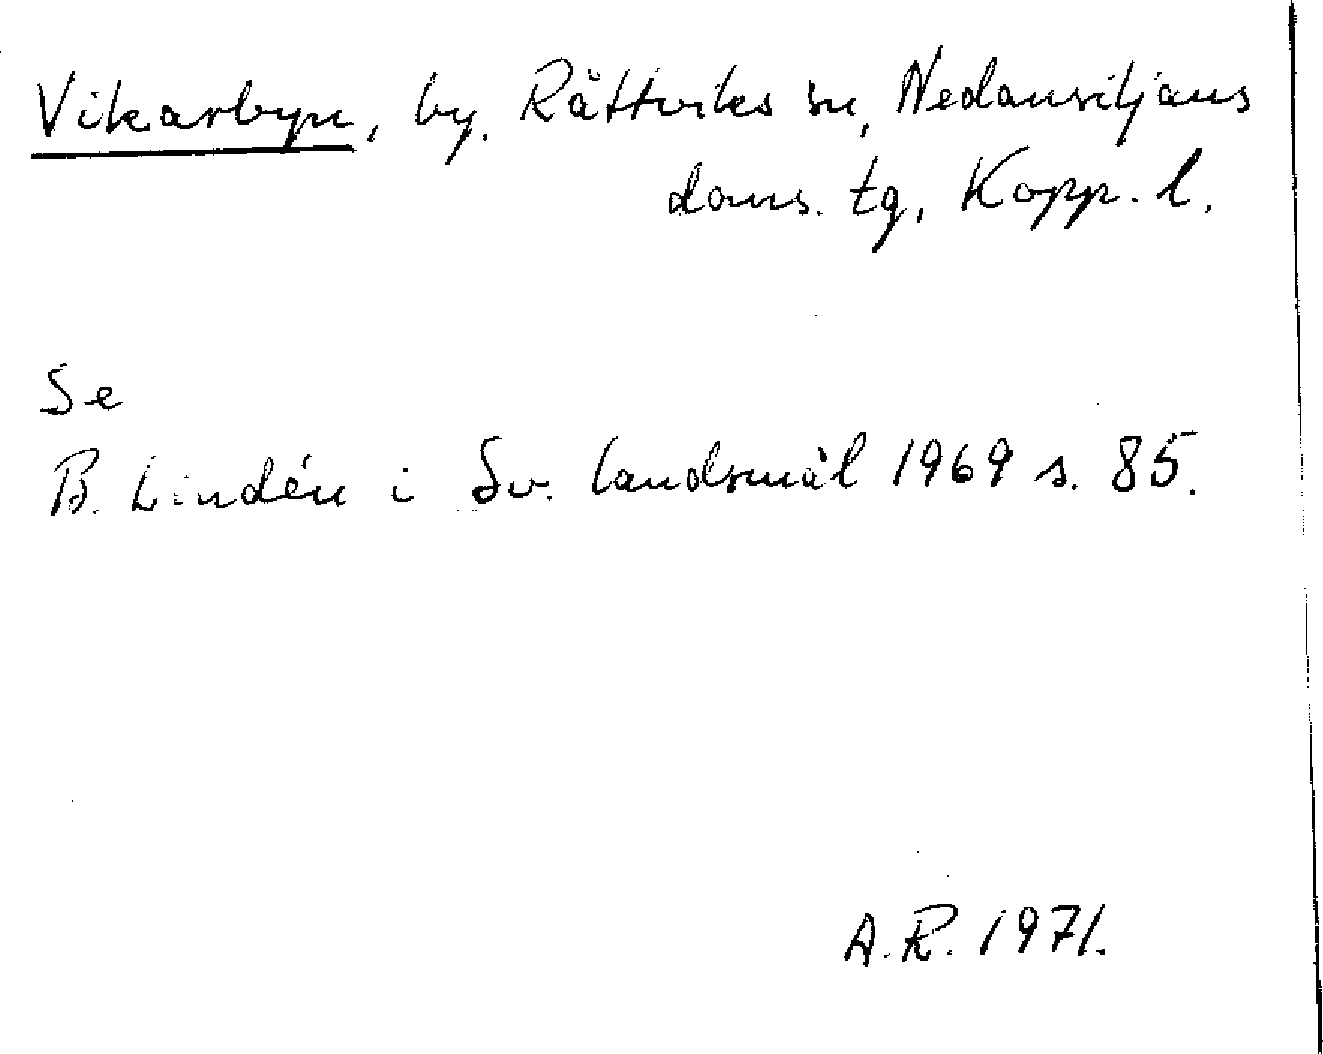 Vikarbyn, by. Rättviks sn, Nedansiljans
doms. tg, Kopp. l.
Se
B. Lindén i Sv. landsmål 1969 s. 85.
A.R. 1971.